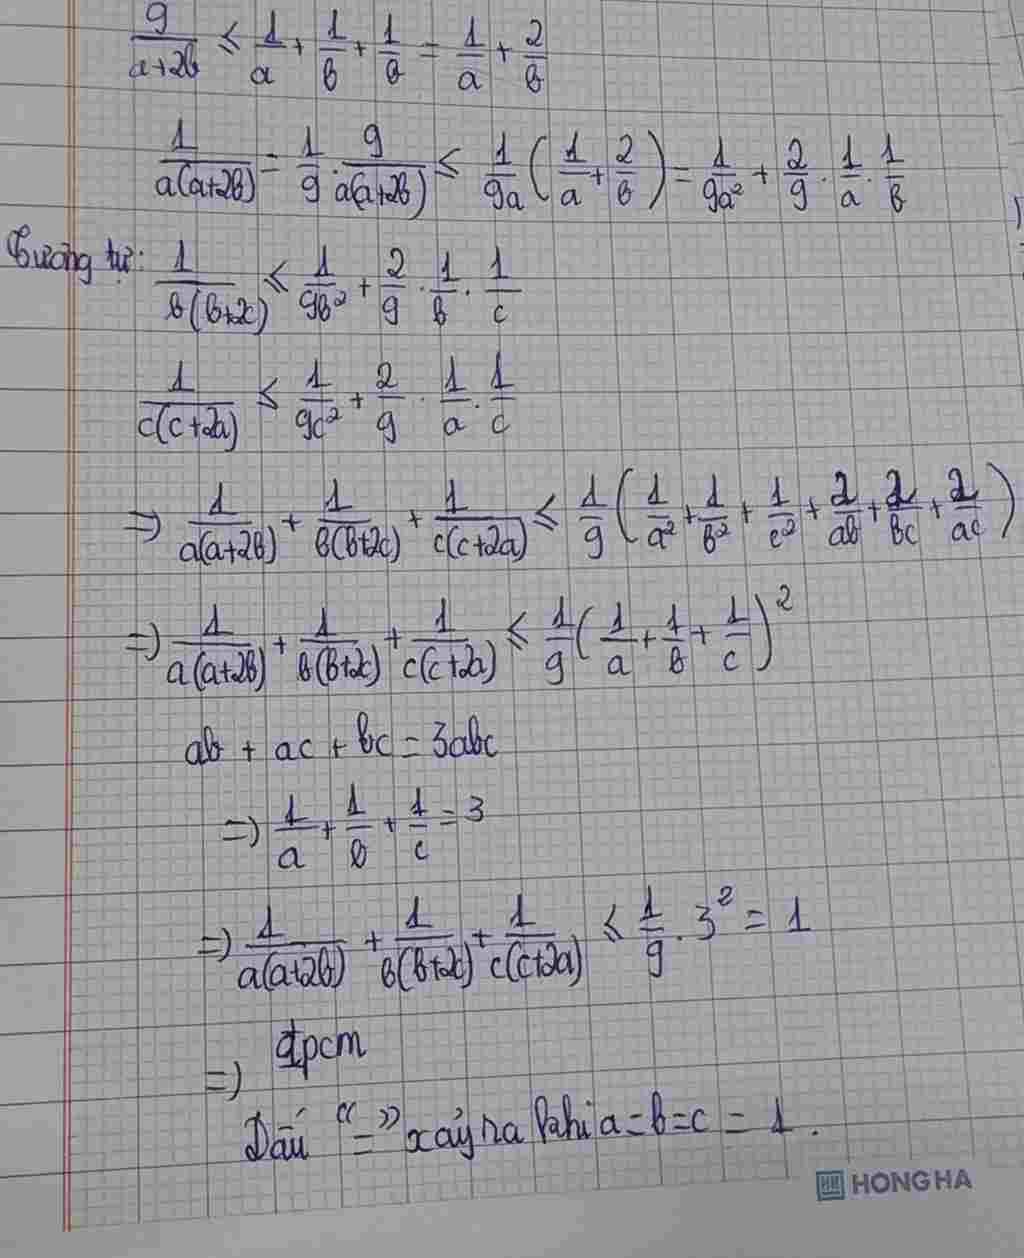 9/(a+2b) ≤ 1/a + 1/b + 1/b = 1/a + 2/b
1/(a(a+2b)) = 1/9 . 9/(a(a+2b)) ≤ 1/(9a) (1/a + 2/b) = 1/(9a²) + 2/9 . 1/a . 1/b
Tương tự: 1/(b(b+2c)) ≤ 1/(9b²) + 2/9 . 1/b . 1/c
1/(c(c+2a)) ≤ 1/(9c²) + 2/9 . 1/a . 1/c
=> 1/(a(a+2b)) + 1/(b(b+2c)) + 1/(c(c+2a)) ≤ 1/9 (1/a² + 1/b² + 1/c² + 2/(ab) + 2/(bc) + 2/(ac))
=> 1/(a(a+2b)) + 1/(b(b+2c)) + 1/(c(c+2a)) ≤ 1/9 (1/a + 1/b + 1/c)²
ab + ac + bc = 3abc
=> 1/a + 1/b + 1/c = 3
=> 1/(a(a+2b)) + 1/(b(b+2c)) + 1/(c(c+2a)) ≤ 1/9 . 3² = 1
=> đpcm
Dấu "=" xảy ra khi a=b=c = 1.
HONG HA